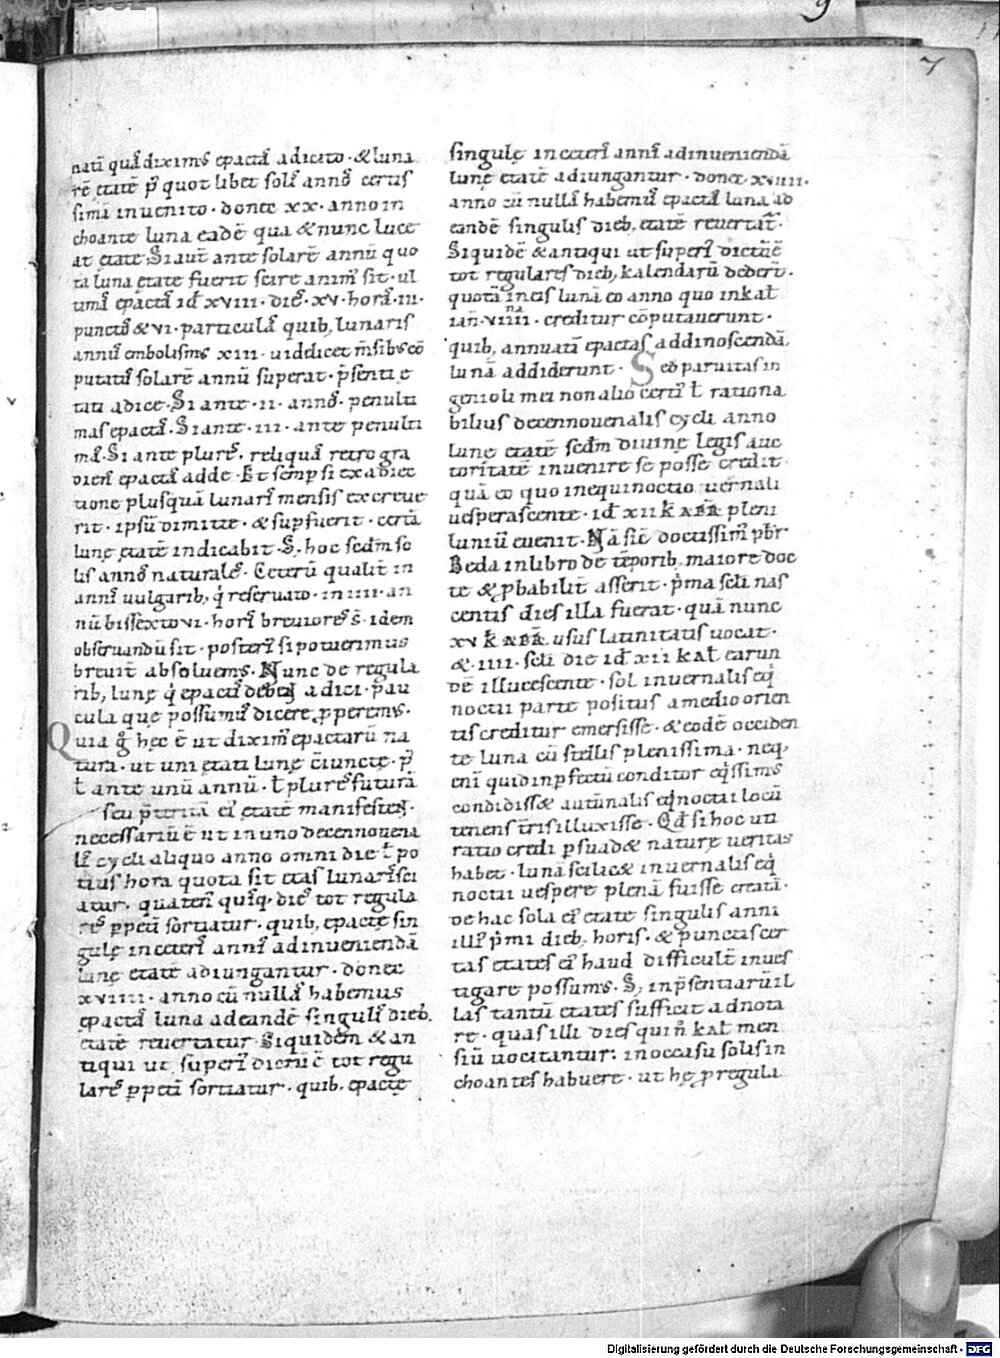 9
7
natī quā diximꝰ epactā adicito · & luna
rē ętatē p̱ quot libet solī annō certis
sima inuenito · donec xx · anno in
choante luna eadē qua & nunc luce
at ętate · Si aut̄ ante solarē annū quo
ta luna ętate fuerit scire animꝰ sit · ul
timā epactā id̄ xviii · dieꝰ · xv · horā · iii ·
punctoꝰ & vi · particulā quib, lunaris
annū embolismꝰ xiii · uiddicet m̄sibꝰ cō
putatiꝰ solarē annū superat · p̄senti ę
tati adice · Si ante · ii · annoꝰ · penulti
mas epactā · Si ante · iii · ante penulti
mā · Si ante plureꝰ · reliquā retrogra
dieri epactā adde · Et semp̱ si ex adiec
tione plusquā lunarī mensis excreue
rit · ipsū dimitte · & sup̱fuerit · certā
lunę ętatē indicabit · S; hoc scdm̄ so
lis annoꝰ naturaleꝰ · Ceterū qualit̄ in
annī uulgarib, q̄ reseruato · in iiii · an
nū bissexto vi · horī breuioreꝰ s̄ · idem
obseruandū sit · posterī si potuerimus
breuit̄ absoluemꝰ · Nunc de regula
rib, lunę q̄ epactī debēt adici · pau
cula que possumꝰ dicere p̱peremꝰ ·
Quia ḡ hęc ē ut diximꝰ epactarū na
tura · ut uni ętati lunę c̄iunctę · p̱
ł ante unū annū · ł plureꝰ futurā
seu p̄teritā eī ętatē manifestet ·
necessariū ē ut in uno decennouena
lī cycli aliquo anno omni die ł po
tius hora quota sit ętas lunarī sci
atur · quaten̄ quisq · dieꝰ tot regula
reꝰ p̱petī sortiatur · quib, epactę sin
gulę in ceterī annī ad inueniendā
lunę etatē adiungantur · donec
xviiii · anno cū nullā habemus
epactā luna ad eandē singulī dieb,
etatē reuertatur · Siquidem & an
tiqui ut superī dictū ē tot regu
lareꝰ p̱petī sortiatur · quib · epactę
singulę in ceterī annī ad inueniendā
lunę etatē adiungantur · donec · xviiii ·
anno cū nullā habemꝰ epactā luna ad
eandē singulis dieb, etatē reuertat̄ ·
Siquidē & antiqui ut superī dictū ē
tot regulares dieb, kalendarū dedert̄ ·
quotā in eis lunā eo anno quo in kał
ian̄ · viiii · creditur cōputauerunt ·
na
quib, annuatī epactas ad dinoscendā
lunā addiderunt · Sed paruitas in
genioli mei non alio certī ł rationa
bilius decennouenalis cycli anno
lunę etatē scdm̄ diuinę legis auc
toritatē inuenire se posse credit ·
quā eo quo in equinoctio uernali
uesperascente · id̄ xii k̄ apr̄ pleni
luniū euenit · Nā sic̄ doctissimꝰ pbr̄
Beda in libro de tēporib, maiore doc
te & p̱babilit̄ asserit · p̄ma scłi nas
centis dies illa fuerat · quā nunc
xv k̄ apr̄ usus latinitatis uocat ·
& · iiii · scłi die id̄ xii kał earun
dē illucescente · sol in uernalis eq̄
noctii parte positus a medio orien
tis creditur emersisse · & eodē occiden
te luna cū stellis plenissima · neq,
enī quid inp̱fectū conditor eq̄ssimꝰ
condidisset autūnalis eq̄noctii locū
tenens t̄ris illuxisse · Qd̄ si hoc uti
ratio credi p̱suadet naturę ueritas
habet · lunā scilicet in uernalis eq̄
noctii uespere plenā fuisse creatā ·
de hac sola eī etate singulis anni
illī p̄mi dieb, horis · & punctis cer
tas etates eī haud difficult̄ inues
tigare possumꝰ · S; in p̄sentiarū il
las tantū etates sufficit adnota
re · quas illi dies qui in̄ kał men
siū uocitantur: in occasu solis in
choantes habuere · ut hę p̱ regula
Digitalisierung gefördert durch die Deutsche Forschungsgemeinschaft - DFG